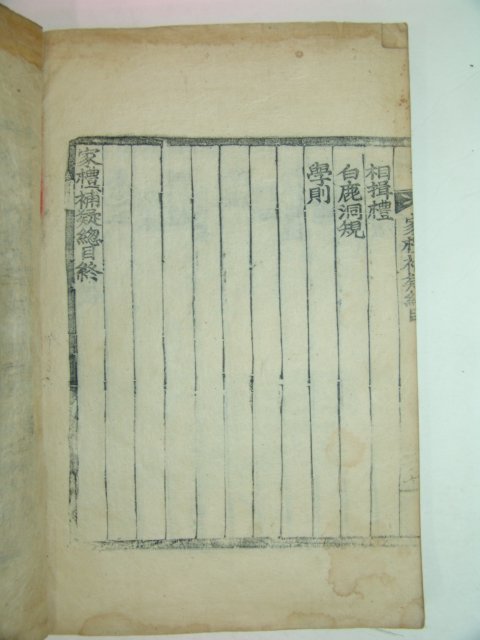 相揖禮
白鹿洞規
學則
家禮補疑總目終
家禮補疑總目